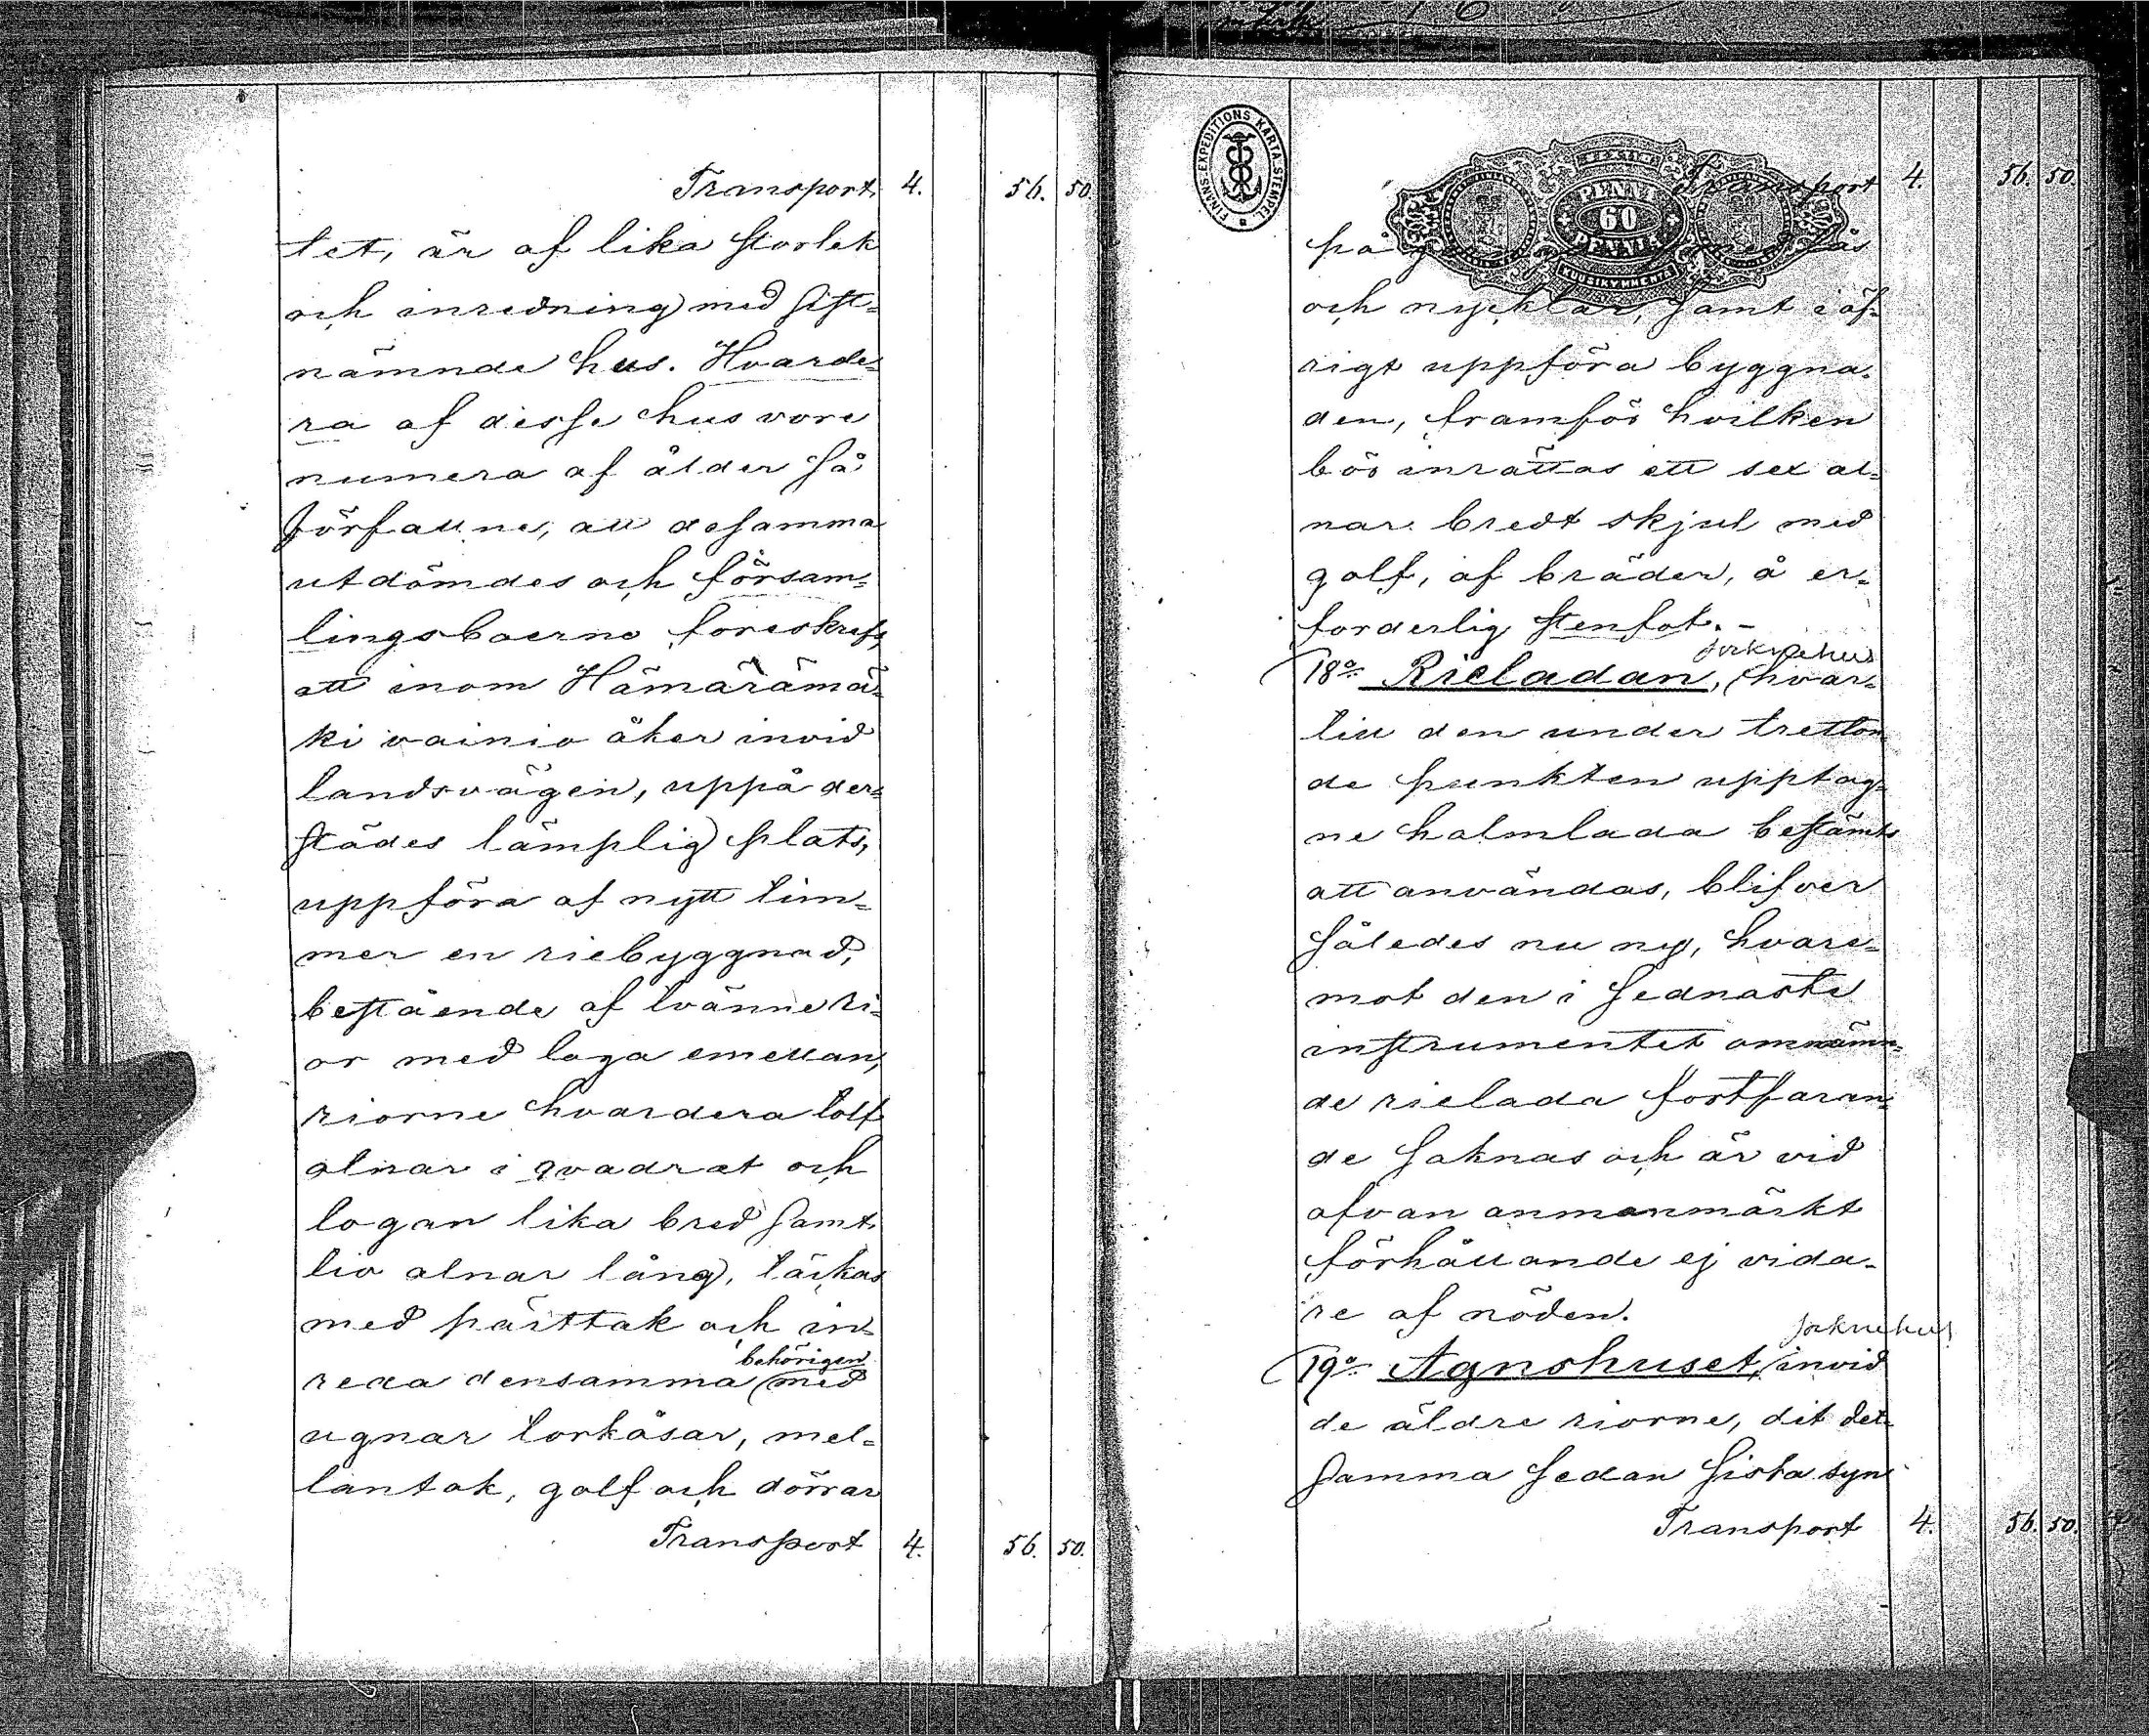 Transport 4. 56. 50.
tet, är af lika storlek
och inredning med sist-
nämnde hus. Hvarde-
ra af desse hus vore
numera af ålder så
förfallne, att desamma
utdömdes och försam-
lingsboerne föreskrefs,
att inom Hämärämä-
ki vainio åker invid
landsvägen, uppå der-
städes lämplig plats,
uppföra af nytt tim-
mer en riebyggnad,
bestående af tvänne ri-
or med loga emellan,
riorne hvardera tolf
alnar i qvadrat och
logan lika bred samt
tio alnar lång, täckas
med pärttak och in-
behörigen
reda densamma (med
ugnar torkåsar, mel-
lantak, golf och dörrar
Transport 4. 56. 50.
FINANS-EXPEDITIONS KARTA-STEMPEL
PENNI
60
PENNIÄ
KUUSIKYMMENTÄ
Transport 4. 56. 50.
på med lås
och nycklar, samt i öf-
rigt uppföra byggna-
den, framför hvilken
bör inrättas ett sex al-
nar bredt skjul med
golf, af bräder, å er-
forderlig stenfot. -
18o Rieladan, (hvar-
till den under tretton-
de punkten upptag-
ne halmlada bestämts
att användas, blifver
således nu ny, hvare-
mot den i sednaste
instrumentet omnämn-
de rielada fortfaran-
de saknas och är vid
ofvan anmanmärkt
förhållande ej vida-
re af nöden.
19o Agnshuset, invid
de äldre riorne, dit det-
samma sedan sista syn
Transport 4. 56. 50.